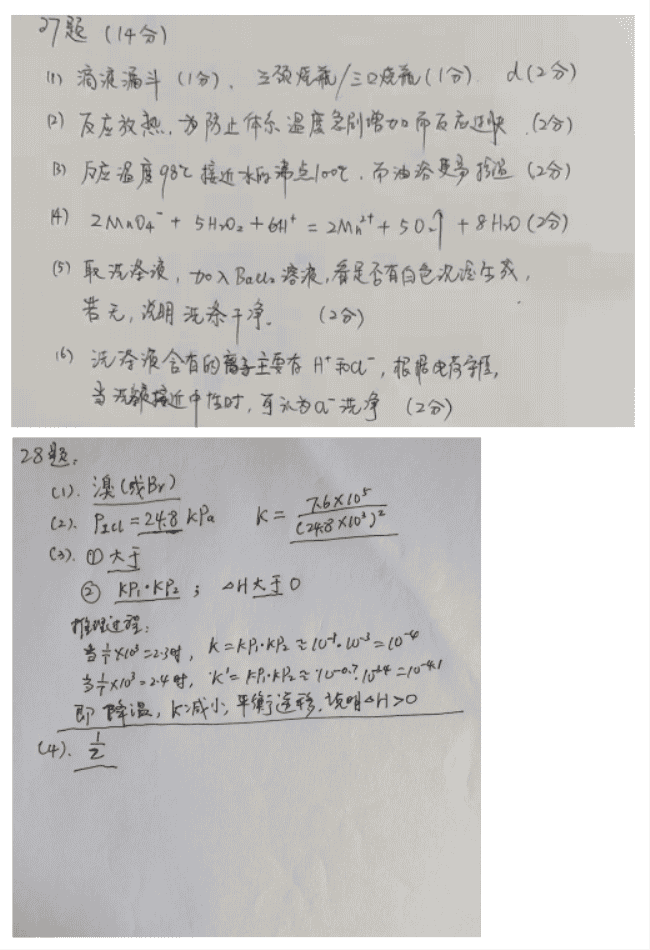 27题 (14分)
(1) 滴液漏斗 (1分)、三颈烧瓶/三口烧瓶(1分) d(2分)
(2) 反应放热,为防止体系温度急剧增加而反应过快 (2分)
(3) 反应温度98℃接近水的沸点100℃,而油浴更易控温 (2分)
(4) 2MnO4⁻ + 5H2O2 + 6H⁺ = 2Mn²⁺ + 5O2↑ + 8H2O (2分)
(5) 取洗涤液,加入BaCl2溶液,看是否有白色沉淀生成,
若无,说明洗涤干净。 (2分)
(6) 洗涤液含有的离子主要有 H⁺和Cl⁻,根据电荷守恒,
当洗液接近中性时,可认为Cl⁻洗净 (2分)
28题:
(1). 溴(或Br)
(2). PICl = 24.8 kPa K = 7.6×10²/(24.8×10³)²
(3). ① 大于
② KP1·KP2 ; △H大于0
推理过程:
当1/T×10³=2.3时, K=KP1·KP2≈10⁻¹·10⁻³=10⁻⁴
当1/T×10³=2.4时, K'=KP1·KP2≈10⁻⁰·⁷·10⁻³·⁴=10⁻⁴·¹
即降温,K减小,平衡逆移,说明△H>0
(4). 1/2